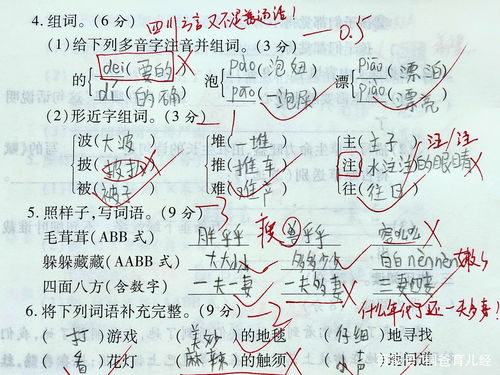 4.组词。(6分) 四川方言又不是普通话! -0.5
(1)给下列多音字注音并组词。(3分)
的 dei(要的) 泡 pāo(泡妞) 漂 piāo(漂泊)
dí(的确) pào(一泡尿) piào(漂亮)
(2)形近字组词。(3分) -1
波(大波) 堆(一堆) 主(主子) 注/注
披(披扌) 推(推车) 注(水注注的眼睛)
被(被子) 难(难产) 往(往日)
5.照样子,写词语。(9分) -3
毛茸茸(ABB式) 胖乎乎 兽乎乎
躲躲藏藏(AABB式) 大大小小 多多少少 白白nènnèn
四面八方(含数字) 一夫一妻 一夫多妻 三妻四妾
6.将下列词语补充完整。(9分) -2 什么年代了还一夫多妻!
(打)游戏 (美妙)的地毯 (仔细)地寻找
(看)花灯 (麻辣)的触须